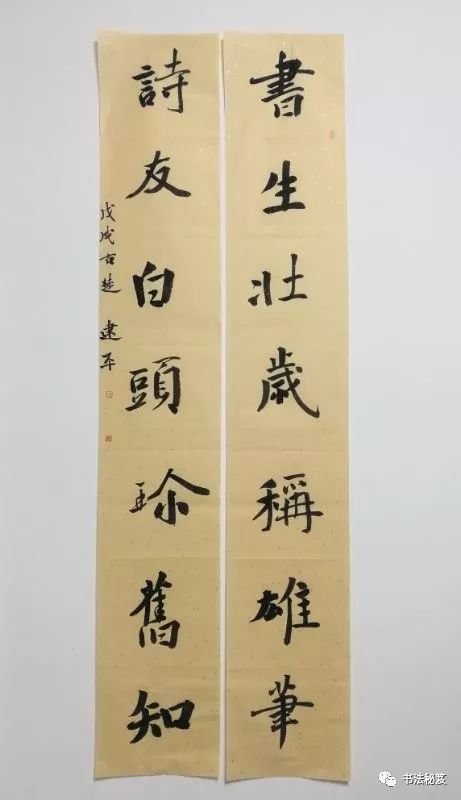 書生壮歲稱雄筆
詩友白頭珎舊知
戊戌古楚 建平
书法秘笈